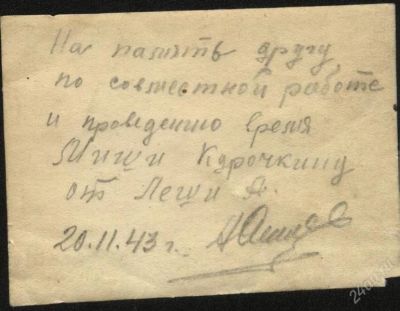 На память другу
по совместной работе
и проведению время
Миши Курочкину
от Леши А.
20.11.43 г.